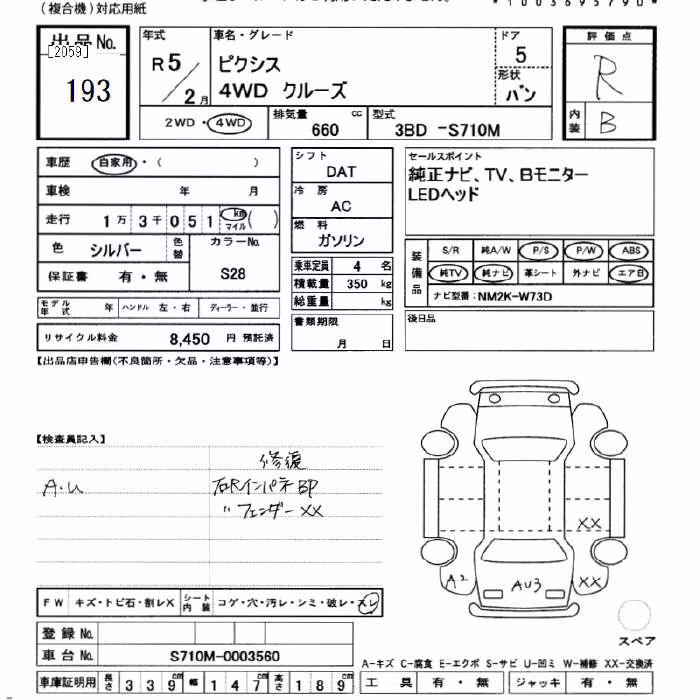 (複合機)対応用紙
*1003695790*
出品No.
[2059]
193
年式
R5/2月
車名・グレード
ピクシス
4WD クルーズ
ドア
5
形状
バン
評価点
R
内装
B
2WD・4WD
排気量
660 cc
型式
3BD -S710M
車歴
自家用・( )
車検 年 月
走行 1万3千051 km マイル( )
色 シルバー 色替
カラーNo.
S28
保証書 有・無
モデル年式 年 ハンドル 左・右 ディーラー・並行
リサイクル料金 8,450 円 預託済
シフト
DAT
冷房
AC
燃料
ガソリン
乗車定員 4 名
積載量 350 kg
総重量 kg
書類期限
月 日
セールスポイント
純正ナビ、TV、Bモニター
LEDヘッド
装備品
S/R 純A/W P/S P/W ABS
純TV 純ナビ 革シート 外ナビ エアB
ナビ型番:NM2K-W73D
後日品
【出品店申告欄(不良箇所・欠品・注意事項等)】
【検査員記入】
修復
A・U
右Rインパネ BP
〃 フェンダー XX
XX
A2
AU3
XX
スペア
FW キズ・トビ石・割レX シート内装 コゲ・穴・汚レ・シミ・破レ・スレ
登録No.
車台No. S710M-0003560
車庫証明用 長さ 339cm 幅 147cm 高さ 189cm
A-キズ C-腐食 E-エクボ S-サビ U-凹ミ W-補修 XX-交換済
工具 有・無 ジャッキ 有・無